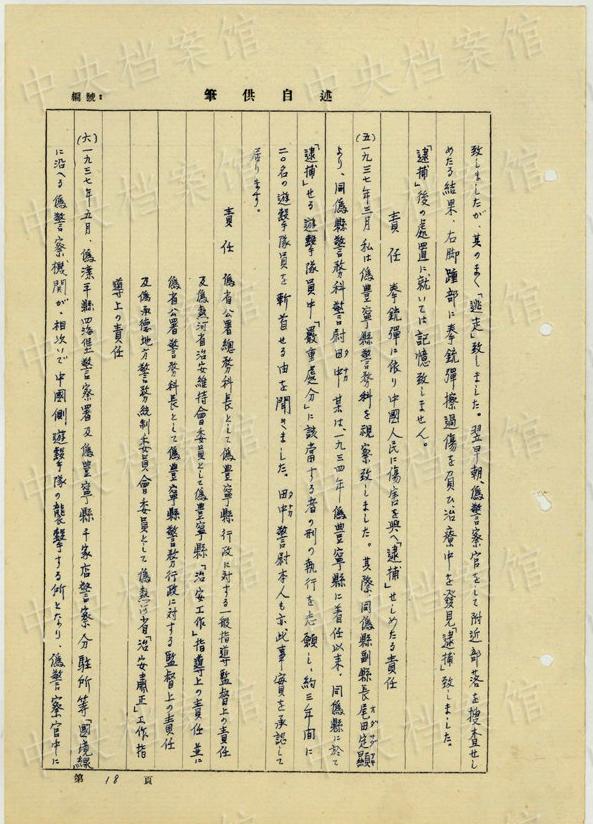 中央档案馆
編號：
筆供自述
致しましたが、其のまゝ「逃走」致しました。翌早朝、偽警察官をして附近部落を搜査せし
めたる結果、右脚踵部に拳銃彈擦過傷を負ひ治療中を發見「逮捕」致しました。
「逮捕」後の處置に就いては記憶致しません。
責任 拳銃彈に依り中國人民に傷害を與へ「逮捕」せしめたる責任
(五)一九三七年三月 私は偽豊寧縣警務科を視察致しました。其際、同偽縣副縣長尾田定顯
より、同偽縣警務科警尉田中某は、一九三四年偽豊寧縣に着任以来、同偽縣に於て
「逮捕」せる遊擊隊員中、「嚴重處分」に該當する者の刑の執行を志願し、約三年間に
二〇名の遊擊隊員を斬首せる由を聞きました。田中警尉本人も亦此事實を承認して
居ります。
責任 偽省公署總務科長として偽豊寧縣行政に対する一般指導監督上の責任
及偽熱河省治安維持會委員として偽豊寧縣「治安工作」指導上の責任 並に
偽省公署警務科長として偽豊寧縣警務行政に対する監督上の責任
及偽承德地方警務統制委員會委員として偽熱河省「治安肅正」工作指
導上の責任
(六)一九三七年五月、偽灤平縣四海堡警察署及偽豊寧縣千家店警察分駐所等「國境線
に沿へる偽警察機関が、相次いで中國側遊擊隊の襲擊する所となり、偽警察官中に
第 18 頁